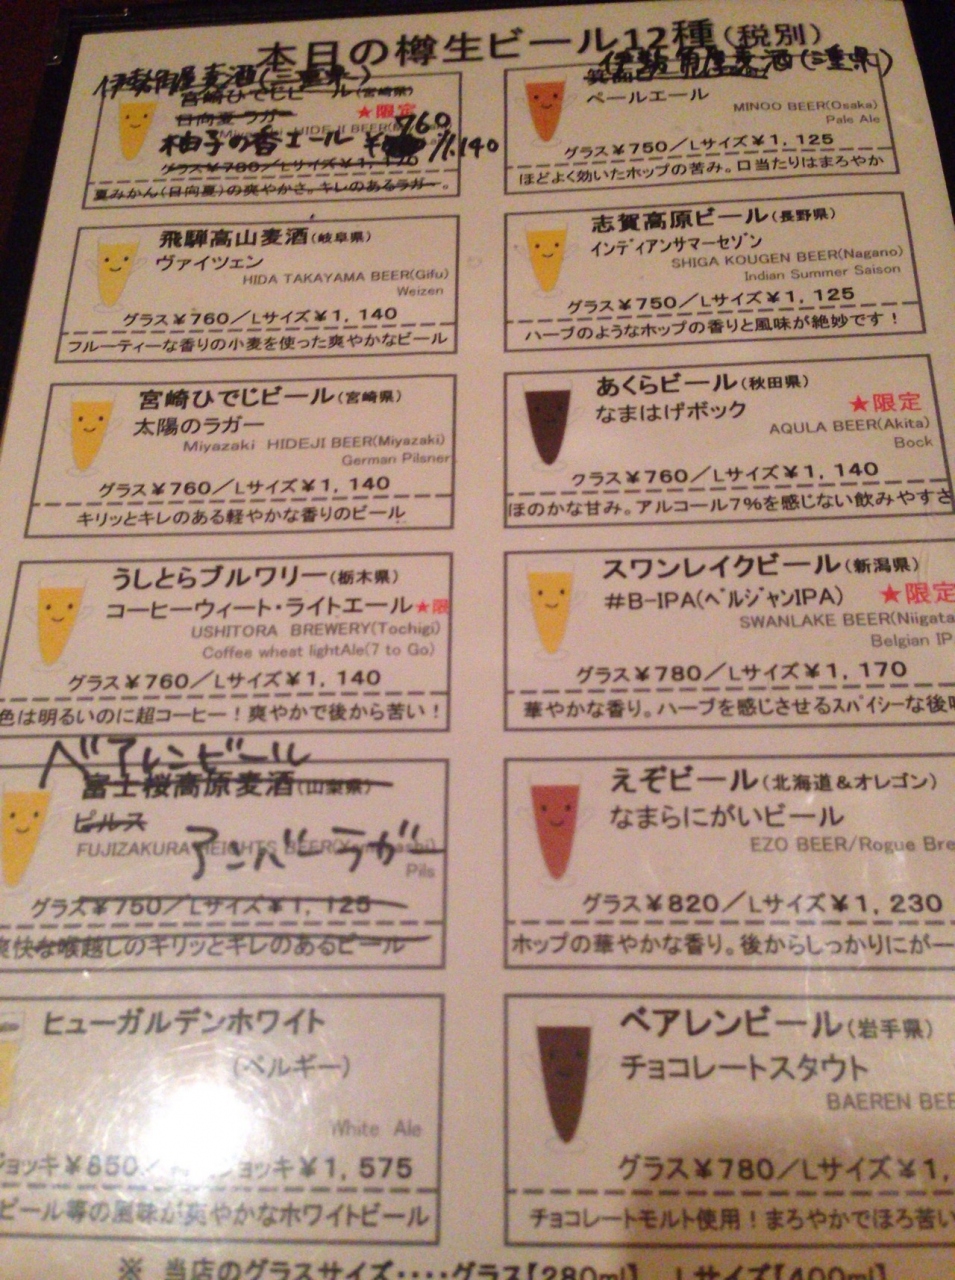 本日の樽生ビール12種(税別)
伊勢角屋麦酒(三重県)
宮崎ひでじビール(宮崎県)
★限定
日向夏ラガー
柚子の香エール ¥760/1.140
グラス¥780/Lサイズ¥1,170
夏みかん(日向夏)の爽やかさ。キレのあるラガー。
伊勢角屋麦酒(三重県)
ペールエール
MINOO BEER(Osaka)
Pale Ale
グラス¥750/Lサイズ¥1,125
ほどよく効いたホップの苦み。口当たりはまろやか
飛騨高山麦酒(岐阜県)
ヴァイツェン
HIDA TAKAYAMA BEER(Gifu)
Weizen
グラス¥760/Lサイズ¥1,140
フルーティーな香りの小麦を使った爽やかなビール
志賀高原ビール(長野県)
インディアンサマーセゾン
SHIGA KOUGEN BEER(Nagano)
Indian Summer Saison
グラス¥750/Lサイズ¥1,125
ハーブのようなホップの香りと風味が絶妙です!
宮崎ひでじビール(宮崎県)
太陽のラガー
Miyazaki HIDEJI BEER(Miyazaki)
German Pilsner
グラス¥760/Lサイズ¥1,140
キリッとキレのある軽やかな香りのビール
あくらビール(秋田県)
なまはげボック
★限定
AQULA BEER(Akita)
Bock
グラス¥760/Lサイズ¥1,140
ほのかな甘み。アルコール7%を感じない飲みやすさ
うしとらブルワリー(栃木県)
コーヒーウィート・ライトエール★限
USHITORA BREWERY(Tochigi)
Coffee wheat lightAle(7 to Go)
グラス¥760/Lサイズ¥1,140
色は明るいのに超コーヒー!爽やかで後から苦い!
スワンレイクビール(新潟県)
#B-IPA(ベルジャンIPA) ★限定
SWANLAKE BEER(Niigata
Belgian IP
グラス¥780/Lサイズ¥1,170
華やかな香り。ハーブを感じさせるスパイシーな後味
ベアレンビール
富士桜高原麦酒(山梨県)
ピルス
アンバーラガー
FUJIZAKURA HEIGHTS BEER(Yamanashi)
Pils
グラス¥750/Lサイズ¥1,125
爽快な喉越しのキリッとキレのあるビール
えぞビール(北海道&オレゴン)
なまらにがいビール
EZO BEER/Rogue Bre
グラス¥820/Lサイズ¥1,230
ホップの華やかな香り。後からしっかりにがー
ヒューガルデンホワイト
(ベルギー)
White Ale
ジョッキ¥850/ ジョッキ¥1,575
ビール等の風味が爽やかなホワイトビール
ベアレンビール(岩手県)
チョコレートスタウト
BAEREN BEE
グラス¥780/Lサイズ¥1,
チョコレートモルト使用!まろやかでほろ苦い
※ 当店のグラスサイズ・・・・グラス【280ml】 Lサイズ【400ml】